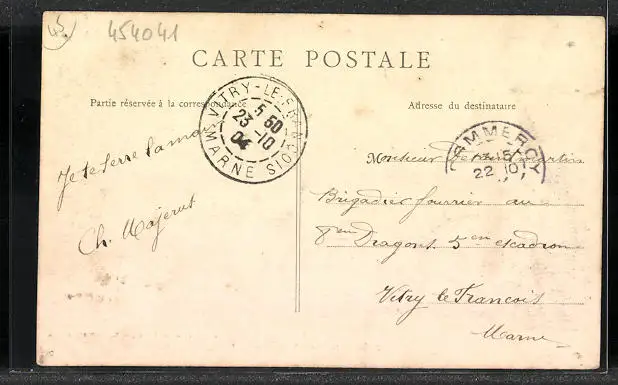 45
454041
CARTE POSTALE
Partie réservée à la correspondance
Adresse du destinataire
VITRY-LE-FRANÇOIS
5 50
23 -10
04
MARNE
COMMERCY
22 10
Je te serre la main
Ch. Majerus
Monsieur
Brigadier fourrier au
8em Dragons 5en escadron
Vitry le Francois
Marne